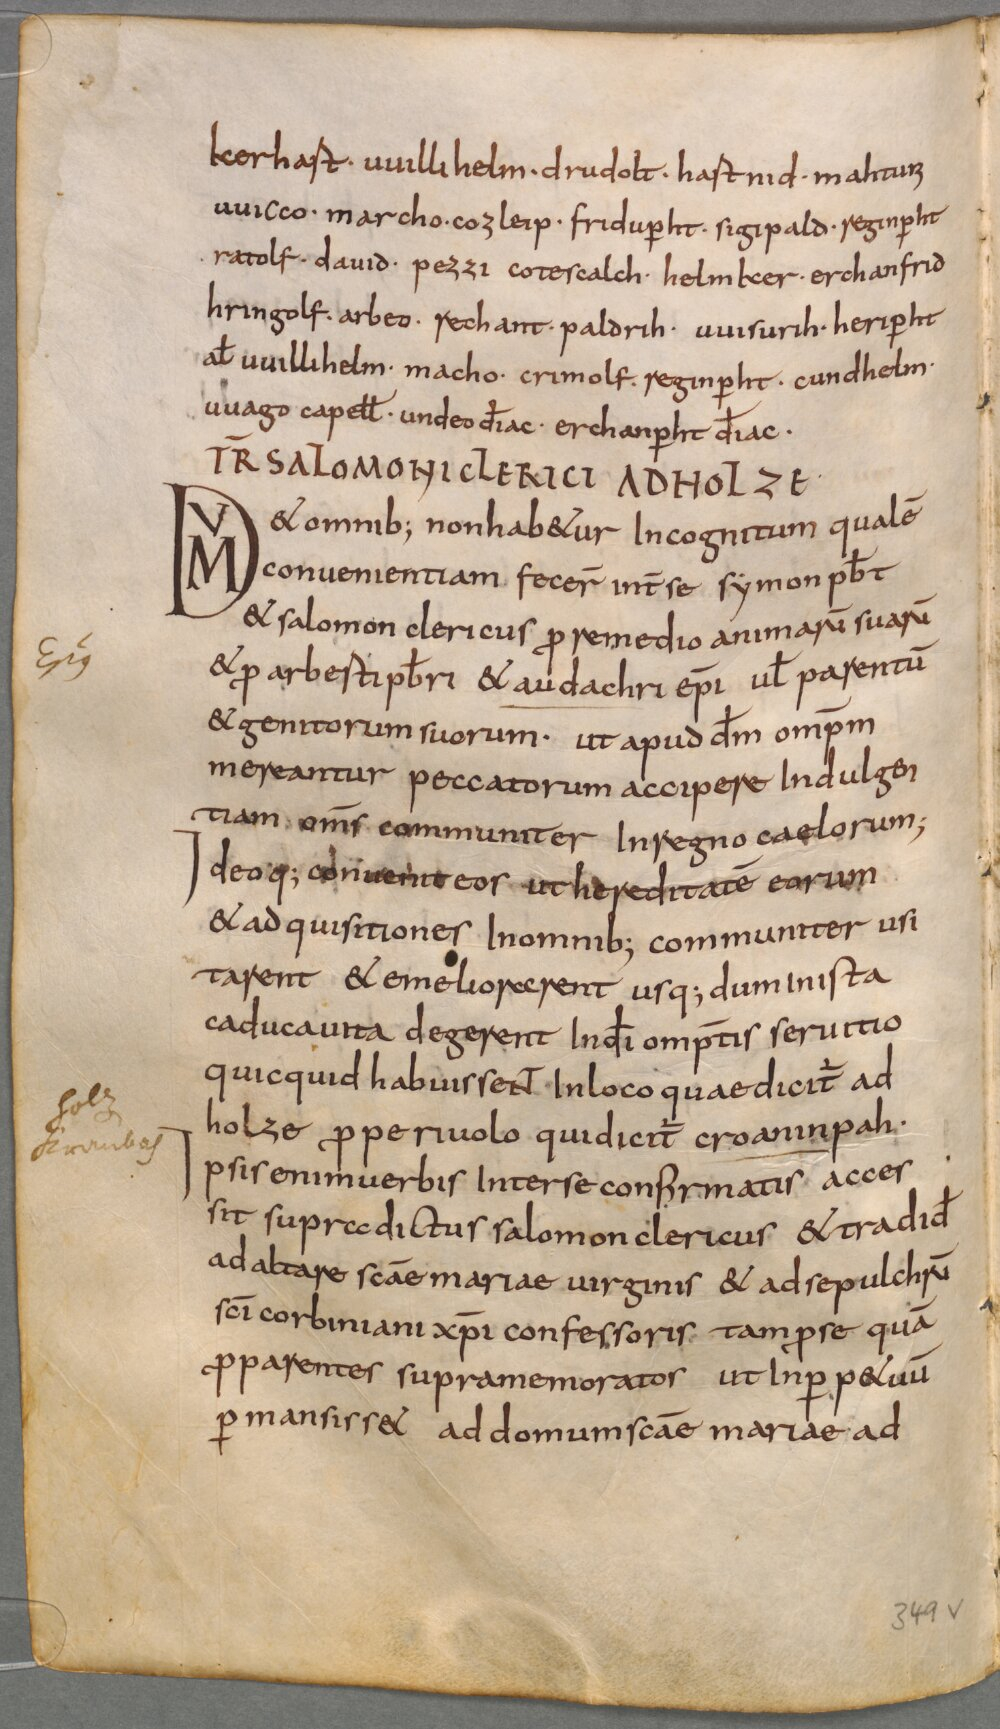 kerhast · uuillihelm · drudolt · hastnid · mahtuni
uuicco · marcho · cozleip · friduꝑht · sigipald · reginꝑht
ratolf · dauid · pezzi cotescalch · helmker · erchanfrid
hringolf · arbeo · rechant · paldrih · uuisurih · heriꝑht
al̄ uuillihelm · macho · crimolf · reginꝑht · cundhelm ·
uuago capell̄ · undeo điac · erchanꝑht điac ·
TR̄ SALOMONI CLERICI AD HOLZE
DVM & omnib; non hab&ur Incognitum qualē
conuenientiam fecer̄ int̄ se symon pb̄t
& salomon clericus ꝓ remedio animarū suarū
& ꝓ arbesti pb̄ri & audachri ep̄i ul̄ parentū
Ep̄s
& genitorum suorum · ut apud dm̄ omp̄m
mereantur peccatorum accipere Indulgen
tiam om̄s communiter In regno caelorum;
Ideoq; conuenit eos ut hereditatē eorum
& adquisitiones In omnib; communiter usi
tarent & emeliorerent usq; dum in ista
caduca uita degerent In dī omp̄tis seruitio
quicquid habuissent In loco quae dicit̄ ad
holz
holze ꝓpe riuolo qui dicit̄ croaninpah ·
Ipsis enim uerbis Inter se confirmatis acces
sit supradictus salomon clericus & tradid̄
ad altare scāe mariae uirginis & ad sepulchrū
scī corbiniani xp̄i confessoris tam ꝓ se quā
ꝓ parentes supramemoratos ut In ꝑp&uū
ꝑmansiss& ad domum scāe mariae ad
349 v